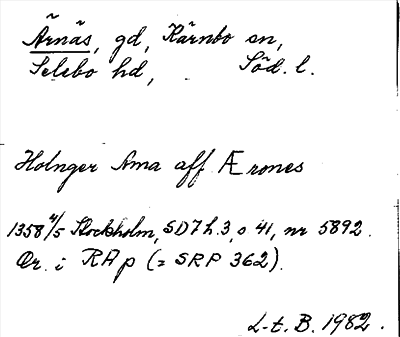 Ärnäs, gd, Kärnbo sn,
Selebo hd, Söd. l.
Holnger Ama aff Ærones
1358 4/5 Stockholm, SD7 h.3, s 41, nr 5892.
Or. i RAp (= SRP 362).
L-t. B. 1982.